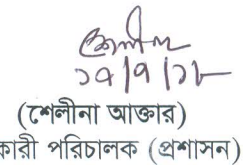 শেলীনা
১৭/৭/১৮
(শেলীনা আক্তার)
কারী পরিচালক (প্রশাসন)